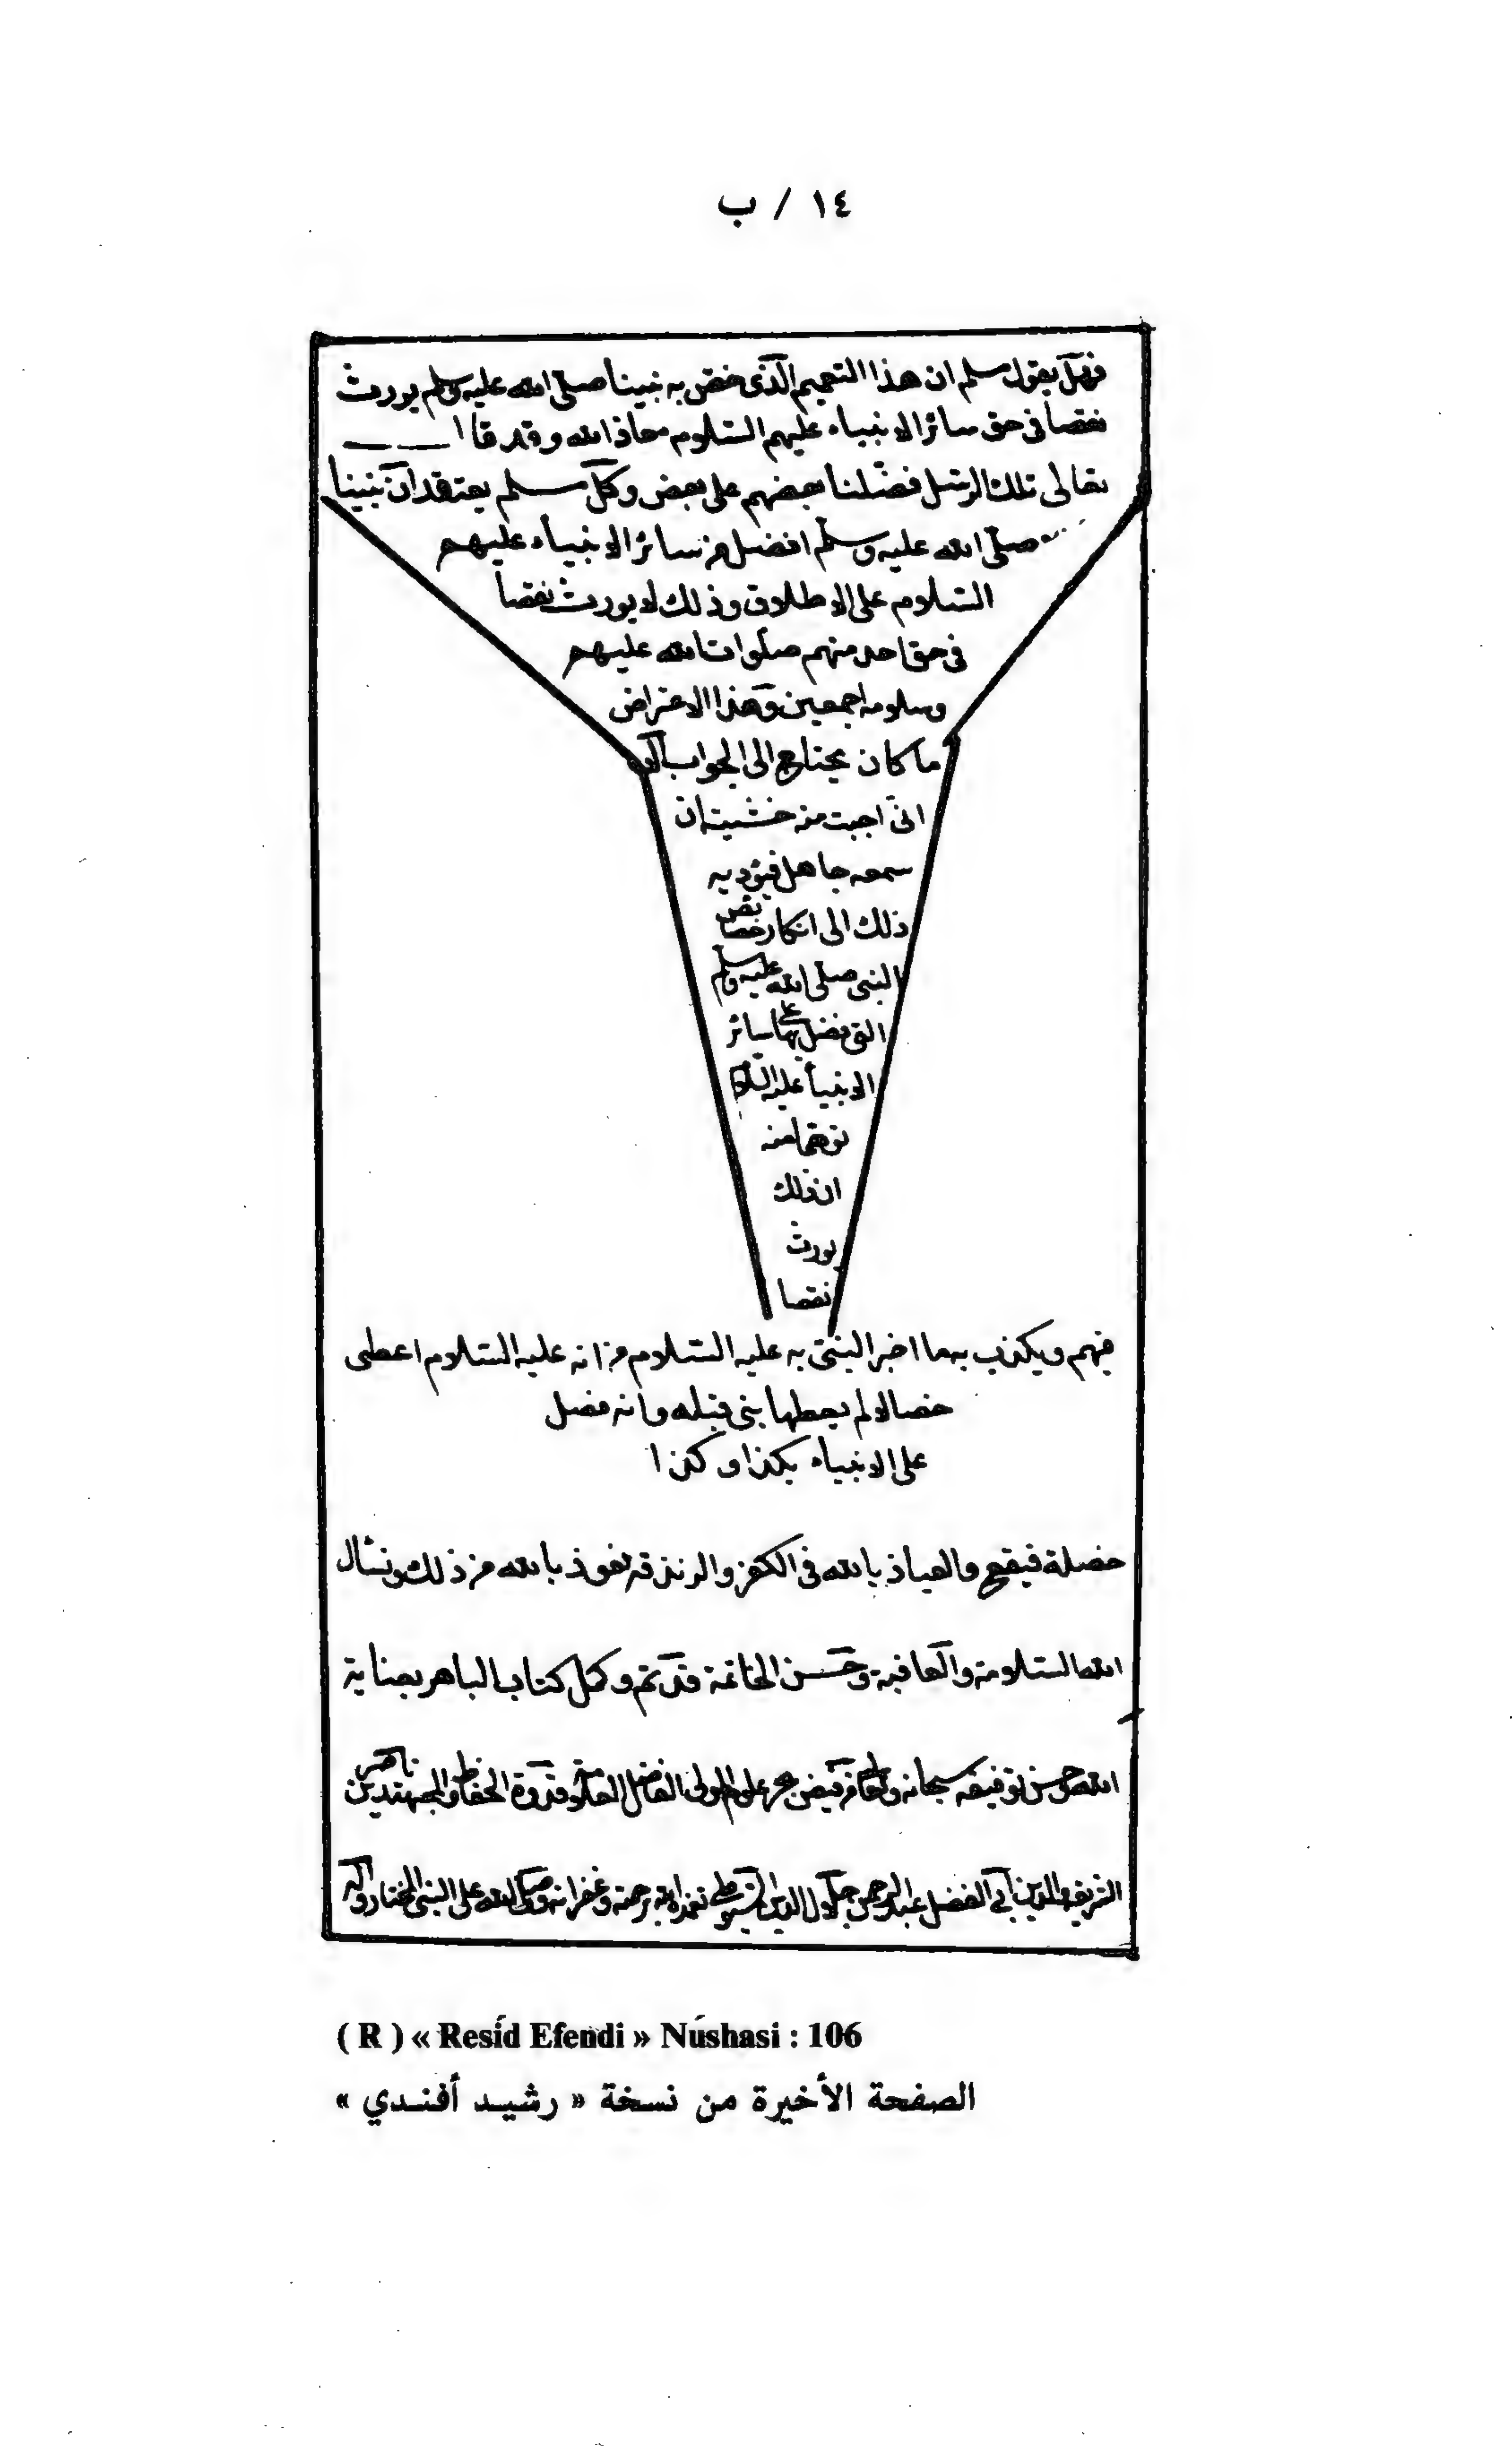 ١٤ / ب
فهل يقول مسلم ان هذا التعميم الذى خص به نبينا صلى الله عليه وسلم يورث
نقصا فى حق سائر الانبياء عليهم السلام معاذ الله وقد قال
تعالى تلك الرسل فضلنا بعضهم على بعض وكل مسلم يعتقد ان نبينا
صلى الله عليه وسلم افضل من سائر الانبياء عليهم
السلام على الاطلاق وذلك لا يورث نقصا
فى حق احد منهم صلوات الله عليهم
وسلامه اجمعين وهذا الاعتراض
ما كان يحتاج الى الجواب
انى اجبت منه خشية ان
سمعه جاهل فيؤديه
ذلك الى انكار خصائص
النبى صلى الله عليه وسلم
التى فضل بها على سائر
الانبيا عليه السلام
توهما منه
ان ذلك
يورث
نقصا
فيهم ويكذب بما اخبر النبى به عليه السلام من انه عليه السلام اعطى
خصالا لم يعطها نبى قبله وانه فضل
على الانبياء بكذا وكذا
خصلة فيقع والعياذ بالله فى الكفر والزندقة نعوذ بالله من ذلك ونسأل
الله السلامة والعافية وحسن الخاتمة قد تم وكمل كتاب الباهر بعناية
الله وحسن توفيقه سبحانه وتعالى من فيض بحر علوم المولى الفاضل العلامة قدوة الحفاظ والمجتهدين ناصر
الشريعة والدين ابى الفضل عبد الرحمن جلال الدين السيوطى تغمده الله برحمته وغفرانه وصلى الله على النبى المختار وآله
( R ) « Resíd Efendi » Núshasi : 106
الصفحة الأخيرة من نسخة « رشيد أفندي »